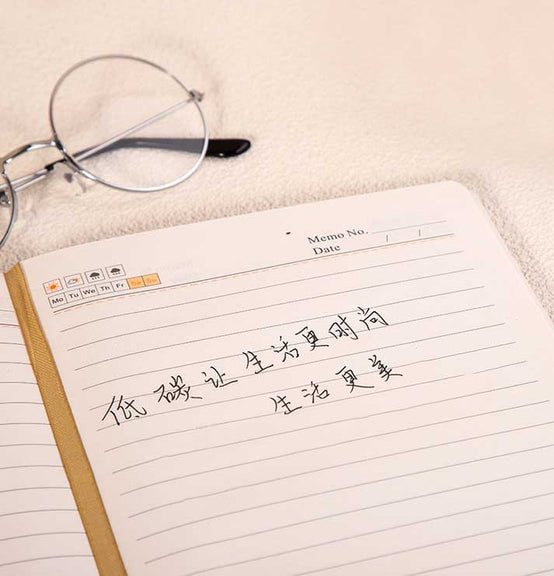 Memo No.
Date / /
Mo Tu We Th Fr Sa Su
低碳让生活更时尚
生活更美